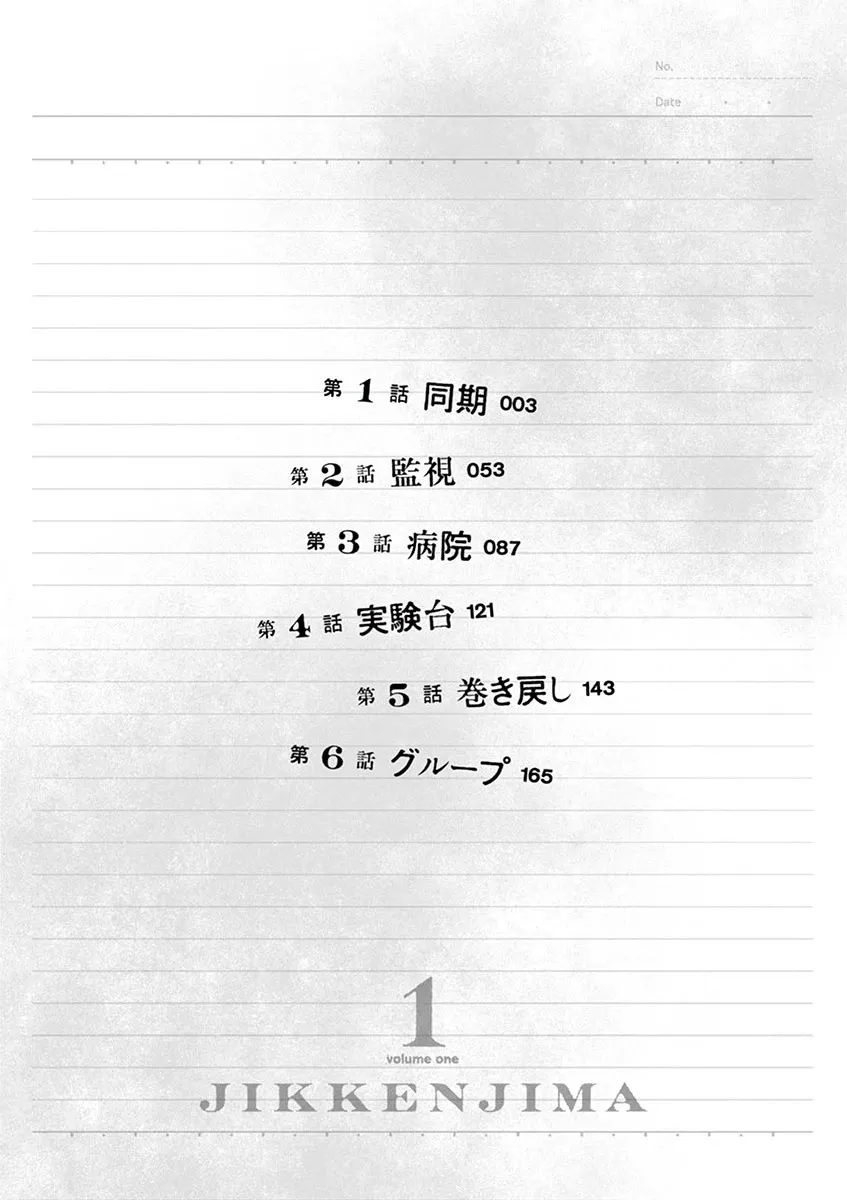 No.
Date
第1話 同期 003
第2話 監視 053
第3話 病院 087
第4話 実験台 121
第5話 巻き戻し 143
第6話 グループ 165
1
volume one
JIKKENJIMA